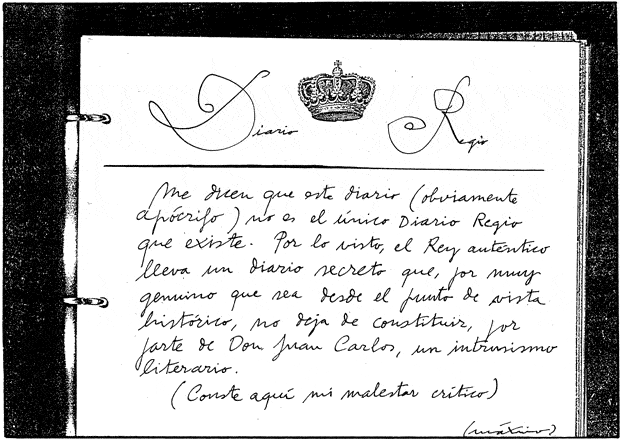 Diario Regio
Me dicen que este diario (obviamente
apócrifo) no es el único Diario Regio
que existe. Por lo visto, el Rey auténtico
lleva un diario secreto que, por muy
genuino que sea desde el punto de vista
histórico, no deja de constituir, por
parte de Don Juan Carlos, un intrusismo
literario.
(Conste aquí mi malestar crítico)
(máximo)